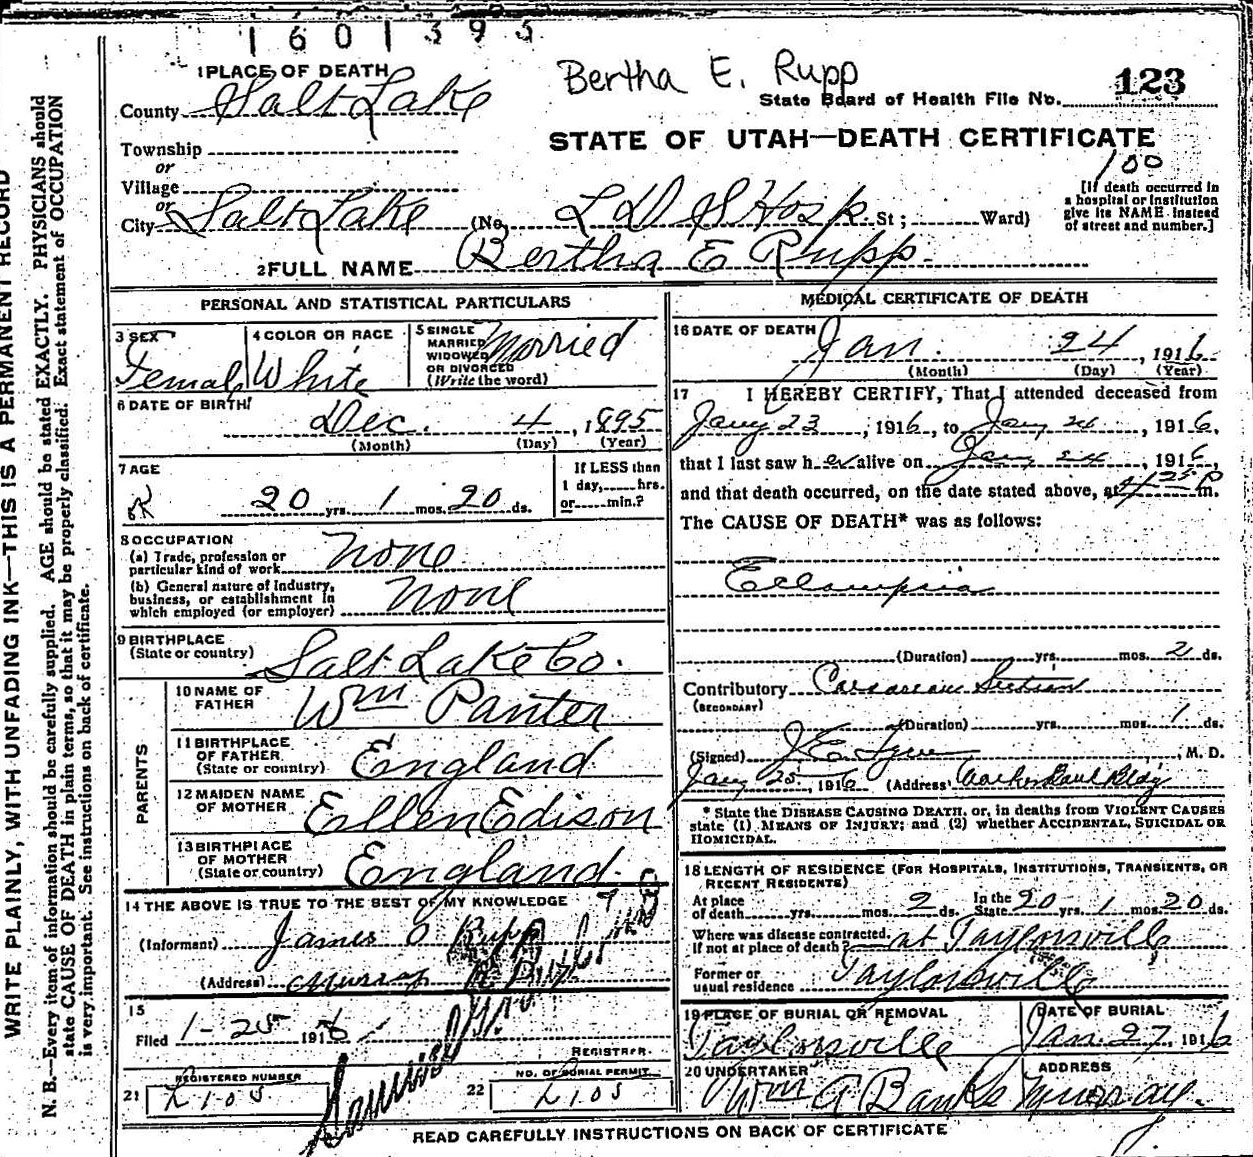 1601393
1 PLACE OF DEATH
Bertha E. Rupp
County Salt Lake
State Board of Health File No. 123
Township
STATE OF UTAH—DEATH CERTIFICATE
or
100
Village
or
City Salt Lake (No. L D S Hosp. St; Ward)
[If death occurred in
a hospital or institution
give its NAME instead
of street and number.]
2 FULL NAME Bertha E Rupp.
PERSONAL AND STATISTICAL PARTICULARS
3 SEX
Female
4 COLOR OR RACE
White
5 SINGLE
MARRIED
WIDOWED
OR DIVORCED
(Write the word)
Married
6 DATE OF BIRTH
Dec. 4, 1895
(Month) (Day) (Year)
7 AGE
20 yrs. 1 mos. 20 ds.
If LESS than
1 day, hrs.
or min.?
8 OCCUPATION
(a) Trade, profession or
particular kind of work None
(b) General nature of Industry,
business, or establishment in
which employed (or employer) None
9 BIRTHPLACE
(State or country) Salt Lake Co.
PARENTS
10 NAME OF
FATHER Wm Panter
11 BIRTHPLACE
OF FATHER
(State or country) England
12 MAIDEN NAME
OF MOTHER Ellen Edison
13 BIRTHPLACE
OF MOTHER
(State or country) England.
14 THE ABOVE IS TRUE TO THE BEST OF MY KNOWLEDGE
(Informant) James O Rupp
(Address) Murray
15
Filed 1-25 1916
REGISTRAR
REGISTERED NUMBER
21 K105
NO. OF BURIAL PERMIT
22 K105
MEDICAL CERTIFICATE OF DEATH
16 DATE OF DEATH Jan. 24, 1916
(Month) (Day) (Year)
17 I HEREBY CERTIFY, That I attended deceased from
Jany 23, 1916, to Jany 24, 1916,
that I last saw her alive on Jany 24, 1916,
and that death occurred, on the date stated above, at 4/25 P m.
The CAUSE OF DEATH* was as follows:
Eclampsia
(Duration) yrs. mos. 2 ds.
Contributory Caesarean Section
(SECONDARY)
(Duration) yrs. mos. 1 ds.
(Signed) M. D.
Jany 25, 1916 (Address) Bldg
* State the DISEASE CAUSING DEATH, or, in deaths from VIOLENT CAUSES
state (1) MEANS OF INJURY; and (2) whether ACCIDENTAL, SUICIDAL OR
HOMICIDAL.
18 LENGTH OF RESIDENCE (FOR HOSPITALS, INSTITUTIONS, TRANSIENTS, OR
RECENT RESIDENTS)
At place
of death yrs. mos. 2 ds.
In the
State 20 yrs. 1 mos. 20 ds.
Where was disease contracted,
if not at place of death? at Taylorsville
Former or
usual residence Taylorsville
19 PLACE OF BURIAL OR REMOVAL
Taylorsville
DATE OF BURIAL
Jan. 27, 1916
20 UNDERTAKER
Wm A Banks
ADDRESS
Murray.
READ CAREFULLY INSTRUCTIONS ON BACK OF CERTIFICATE
WRITE PLAINLY, WITH UNFADING INK—THIS IS A PERMANENT RECORD
N. B.—Every item of information should be carefully supplied. AGE should be stated EXACTLY. PHYSICIANS should
state CAUSE OF DEATH in plain terms, so that it may be properly classified. Exact statement of OCCUPATION
is very important. See instructions on back of certificate.